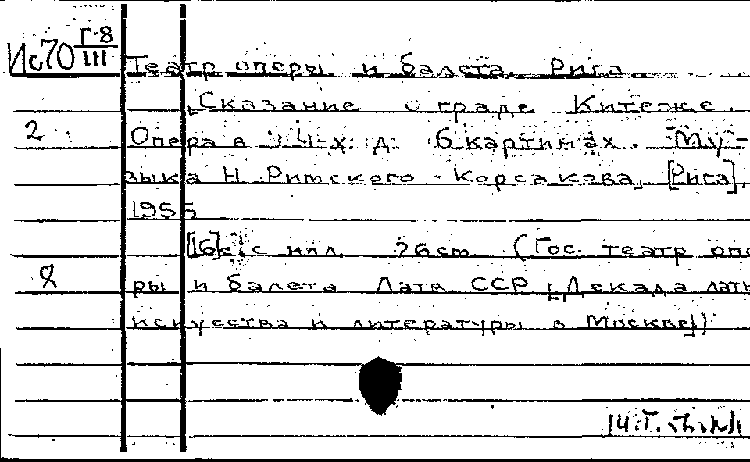 Ис70 Г-8/III
Театр оперы и балета. Рига.
Сказание о граде Китеже.
2
Опера в 4-х д. 6 картинах. Му-
зыка Н. Римского-Корсакова, [Рига],
1955
[16] с. илл. 26 см (Гос. театр опе
ры и балета Латв ССР [Декада латы
искусства и литературы в Москве])